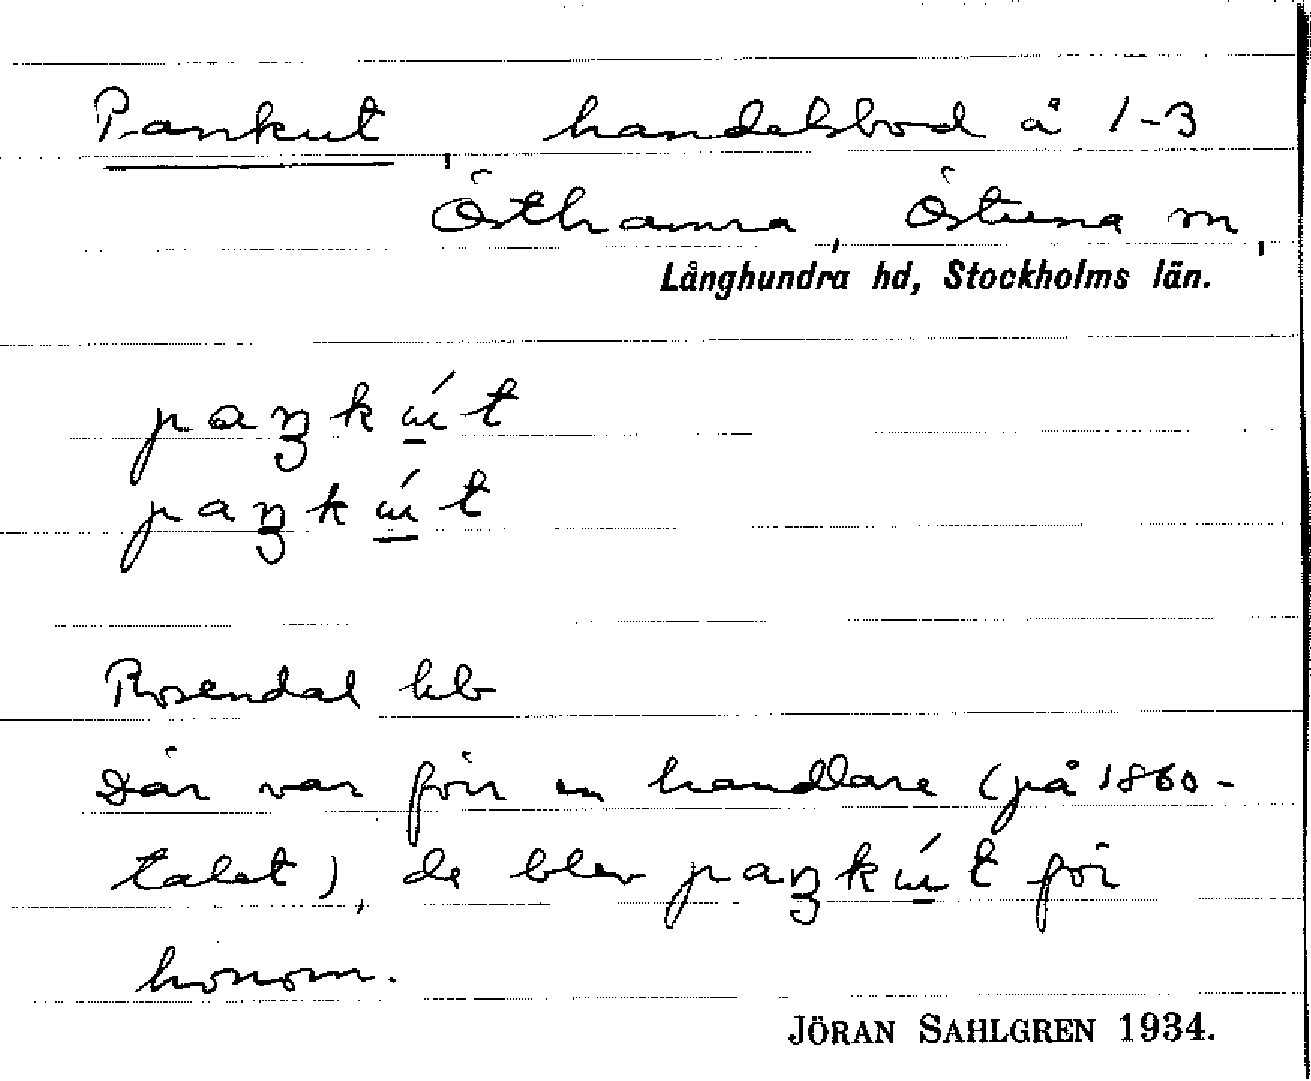 Pankut, handelsbod å 1-3
Östhamra, Östuna sn,
Långhundra hd, Stockholms län.
paŋkút
paŋkút
Rosendal kb
Där var förr en handlare (på 1860-
talet), de blev paŋkút för
honom.
JÖRAN SAHLGREN 1934.